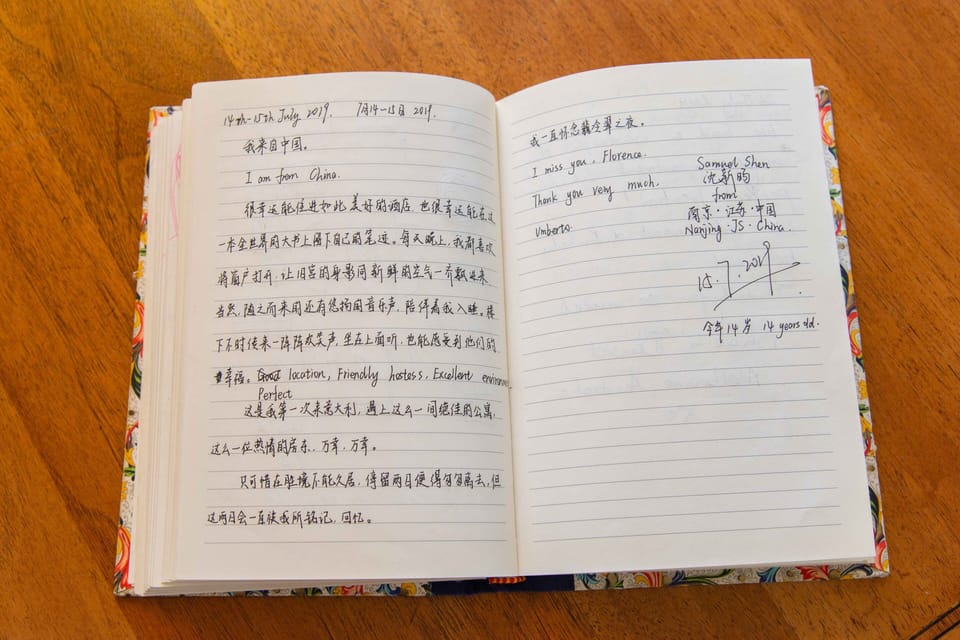 14th-15th July 2019. 7月14-15日 2019.
我来自中国。
I am from China.
很幸运能住进如此美好的酒店,也很幸运能在这
一本全世界的大书上留下自己的笔迹。每天晚上,我都喜欢
将窗户打开,让旧宫的身影同新鲜的空气一齐飘进来,
当然,随之而来的还有悠扬的音乐声,陪伴着我入睡。楼
下不时传来一阵阵欢笑声,坐在上面听,也能感受到他们的
幸福。Good location, Friendly hostess, Excellent
Perfect
这是我第一次来意大利,遇上这么一间绝佳的公寓,
这么一位热情的房东,万幸,万幸。
只可惜在胜境不能久居,停留两日便得匆匆离去,但
这两日会一直被我所铭记,回忆。
我一直怀念翡冷翠之夜。
I miss you, Florence.
Thank you very much,
Umberto.
Samuel Shen
沈新昀
from
南京·江苏·中国
Nanjing·JS·China.
15.7.2019
今年14岁 14 years old.